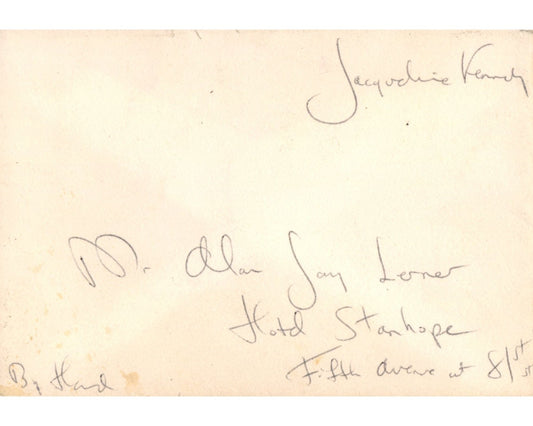 Jacqueline Kennedy
Mr. Alan Jay Lerner
Hotel Stanhope
Fifth Avenue at 81st st
By Hand